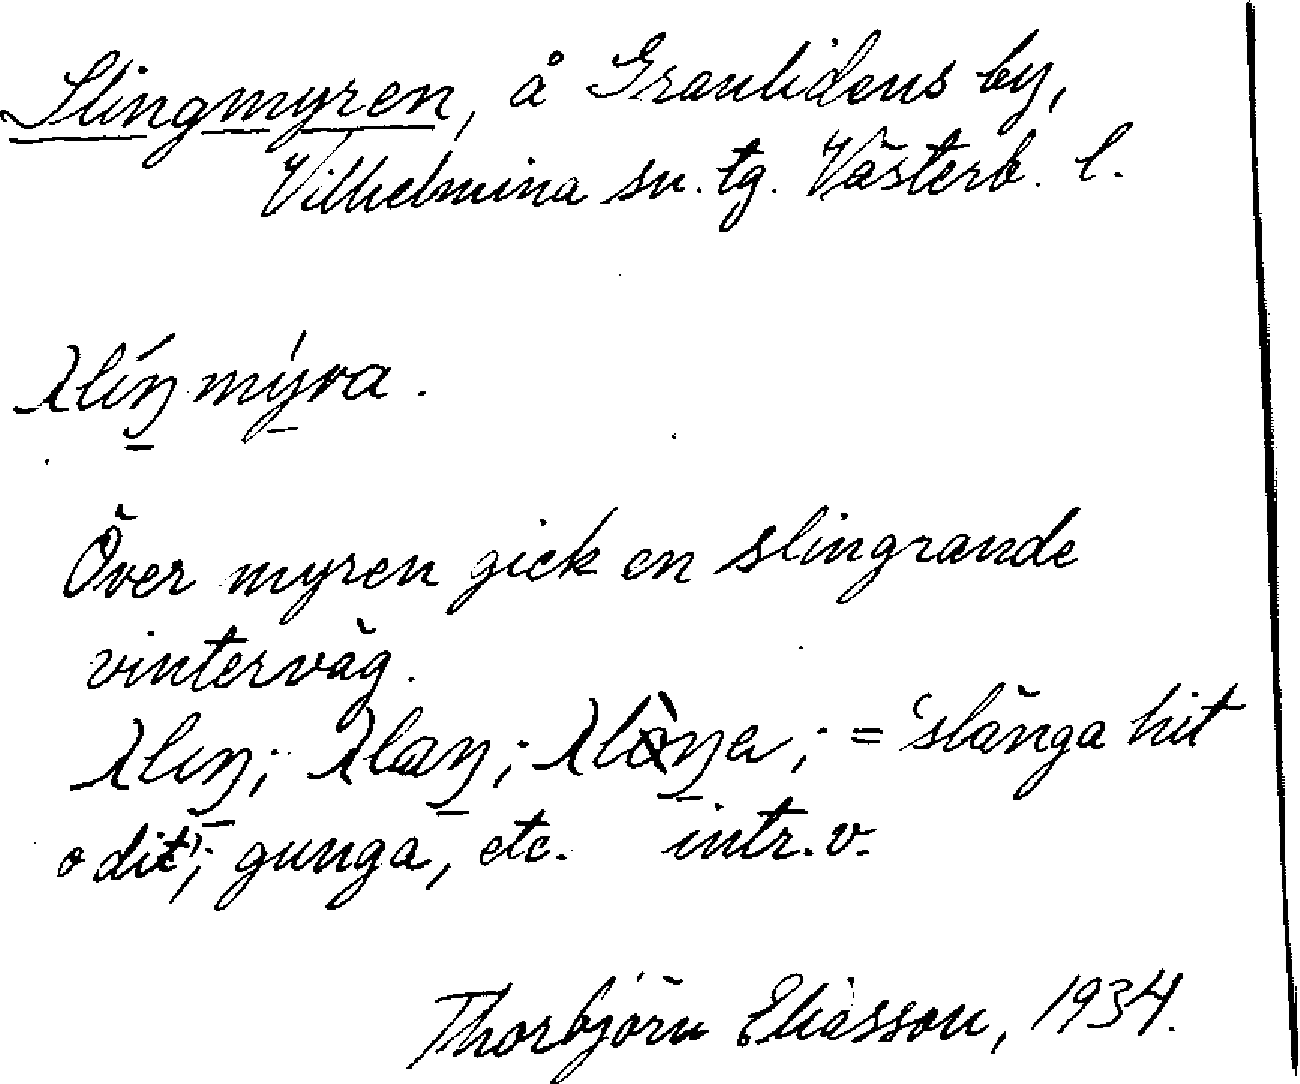 Slingmyren, å Granlidens by,
Vilhelmina sn. tg. Västerb. l.
λlíŋmýra.
Över myren gick en slingrande
vinterväg.
λlıŋ; λlaŋ; λlòŋa; = 'slänga hit
o dit'; gunga, etc. intr. v.
Thorbjörn Eliasson, 1934.